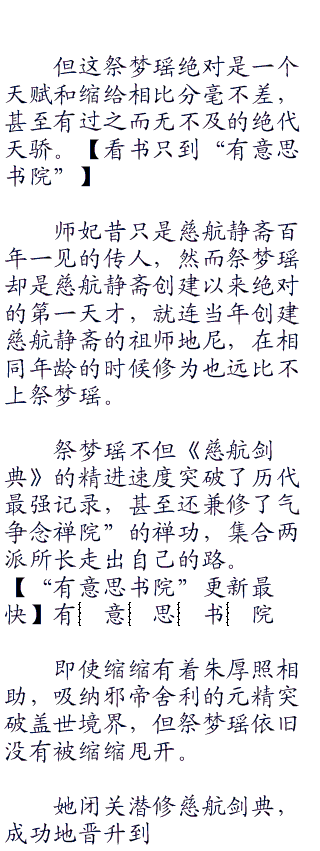 但这祭梦瑶绝对是一个
天赋和缩给相比分毫不差，
甚至有过之而无不及的绝代
天骄。【看书只到“有意思
书院”】
师妃昔只是慈航静斋百
年一见的传人，然而祭梦瑶
却是慈航静斋创建以来绝对
的第一天才，就连当年创建
慈航静斋的祖师地尼，在相
同年龄的时候修为也远比不
上祭梦瑶。
祭梦瑶不但《慈航剑
典》的精进速度突破了历代
最强记录，甚至还兼修了气
争念禅院”的禅功，集合两
派所长走出自己的路。
【“有意思书院”更新最
快】有┊意┊思┊书┊院
即使缩缩有着朱厚照相
助，吸纳邪帝舍利的元精突
破盖世境界，但祭梦瑶依旧
没有被缩缩甩开。
她闭关潜修慈航剑典，
成功地晋升到